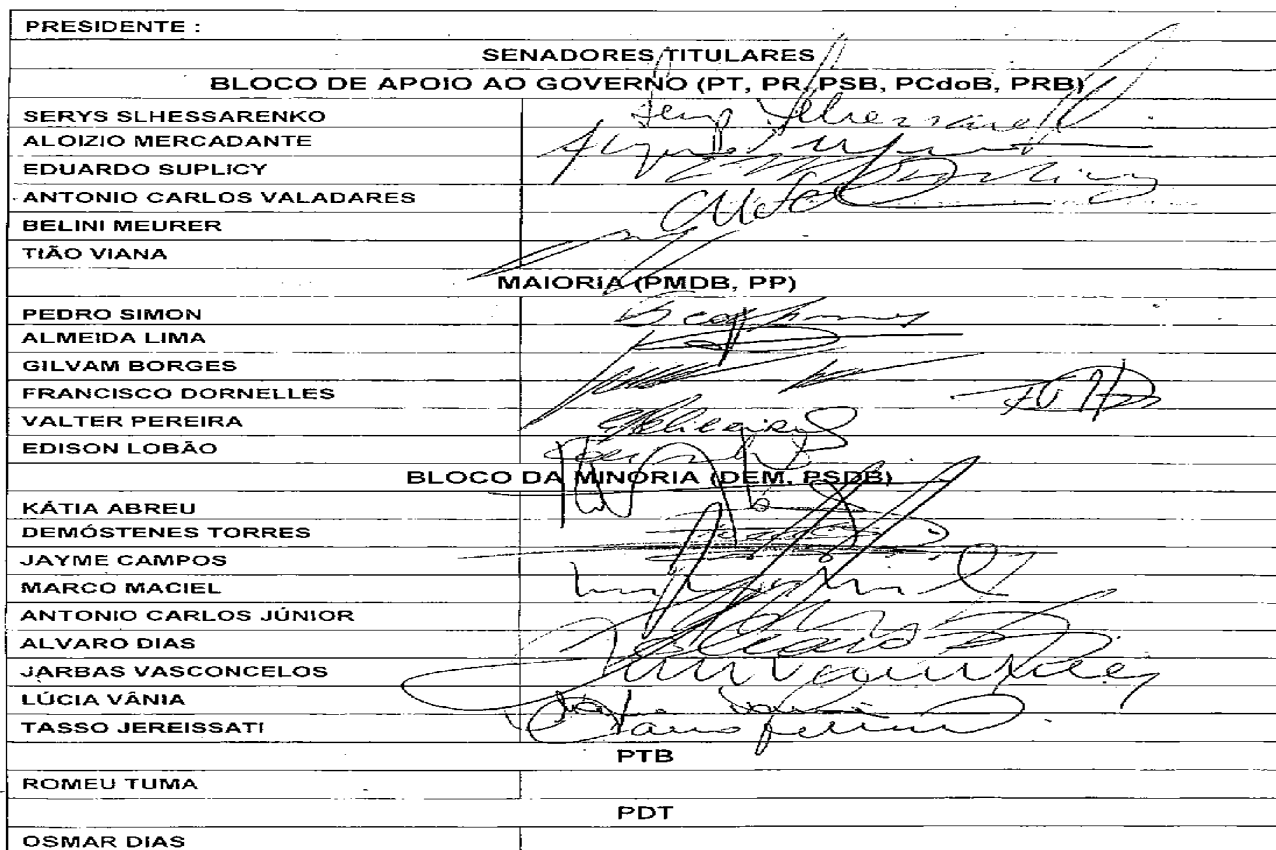 PRESIDENTE :
SENADORES TITULARES
BLOCO DE APOIO AO GOVERNO (PT, PR, PSB, PCdoB, PRB)
SERYS SLHESSARENKO
ALOIZIO MERCADANTE
EDUARDO SUPLICY
ANTONIO CARLOS VALADARES
BELINI MEURER
TIÃO VIANA
MAIORIA (PMDB, PP)
PEDRO SIMON
ALMEIDA LIMA
GILVAM BORGES
FRANCISCO DORNELLES
VALTER PEREIRA
EDISON LOBÃO
BLOCO DA MINORIA (DEM, PSDB)
KÁTIA ABREU
DEMÓSTENES TORRES
JAYME CAMPOS
MARCO MACIEL
ANTONIO CARLOS JÚNIOR
ALVARO DIAS
JARBAS VASCONCELOS
LÚCIA VÂNIA
TASSO JEREISSATI
PTB
ROMEU TUMA
PDT
OSMAR DIAS